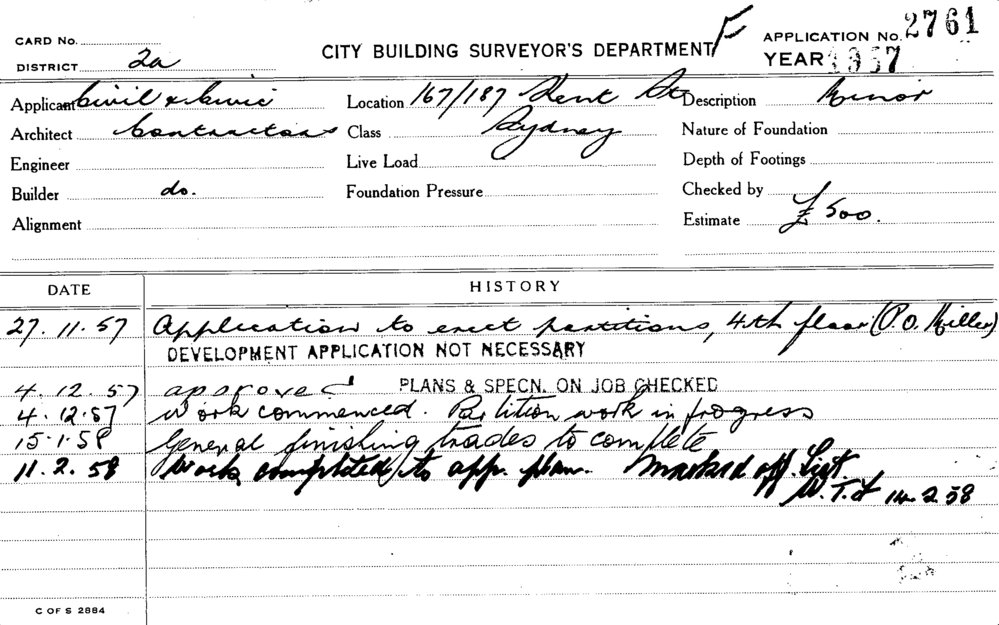 CARD No.
DISTRICT 2a
CITY BUILDING SURVEYOR'S DEPARTMENT F
APPLICATION No. 2761
YEAR 1957
Applicant Civil & Civic Location 167/187 Kent St Description Minor
Architect Contractors Class Sydney Nature of Foundation
Engineer Live Load Depth of Footings
Builder do. Foundation Pressure Checked by
Alignment Estimate £ 500.
DATE HISTORY
27.11.57 Application to erect partitions, 4th floor (P.O. Miller)
DEVELOPMENT APPLICATION NOT NECESSARY
4.12.57 approved PLANS & SPECN. ON JOB CHECKED
4.12.57 Work commenced. Partition work in progress
15.1.58 General finishing trades to complete
11.2.58 Work completed to app. plan. Marked off List.
14.2.58
C OF S 2884